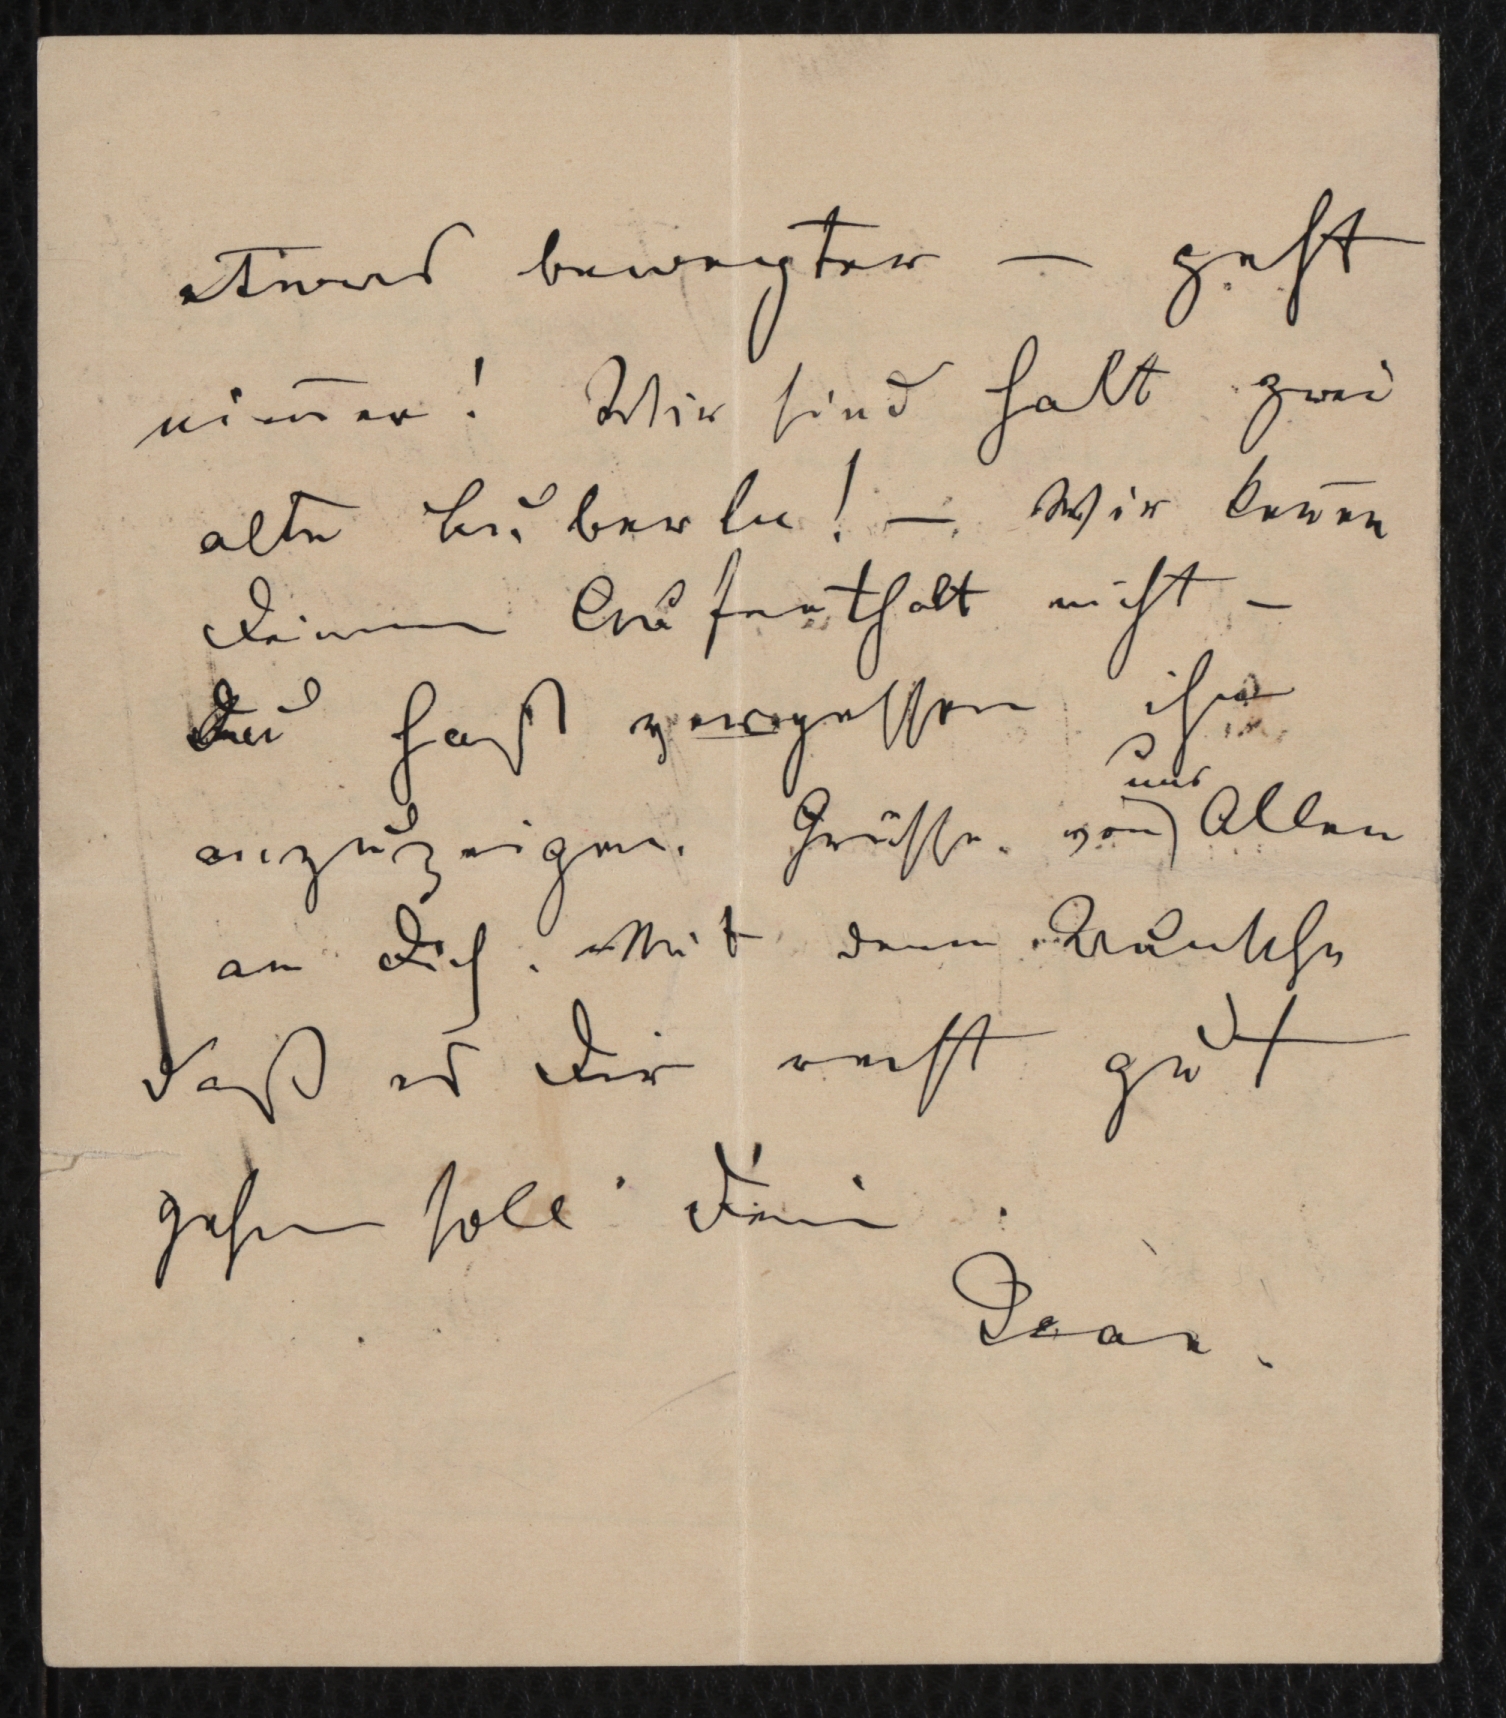 etwas bewegter — geht
nim̄er! Wir sind halt zwei
alte Luberln! — Wir ken̄en
Deinen Aufenthalt nicht —
Du hast vergessen ihn
anzuzeigen. Grüsse. von uns Allen
an Dich. Mit dem Wunsche
daß es Dir recht gut
gehen soll Dein